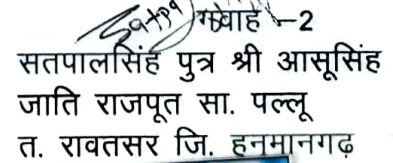 गवाह -2
सतपालसिंह पुत्र श्री आसूसिंह
जाति राजपूत सा. पल्लू
त. रावतसर जि. हनमानगढ़